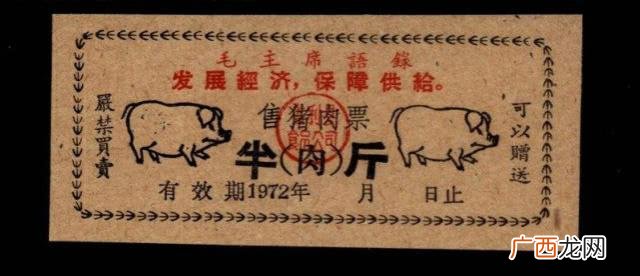 毛主席語錄
发展經济，保障供給。
嚴禁買賣
售猪肉票
可以贈送
半(肉)斤
有效期1972年 月 日止
广西龙网